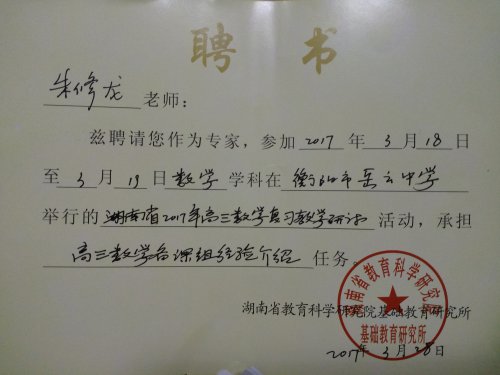 聘书
朱修龙 老师：
兹聘请您作为专家，参加 2017 年 3 月 18 日
至 3 月 19 日 数学 学科在 衡阳市岳云中学
举行的 湖南省2017年高三数学复习教学研讨 活动，承担
高三数学备课组经验介绍 任务。
湖南省教育科学研究院基础教育研究所
湖南省教育科学研究院
基础教育研究所
2017年 3 月 28 日